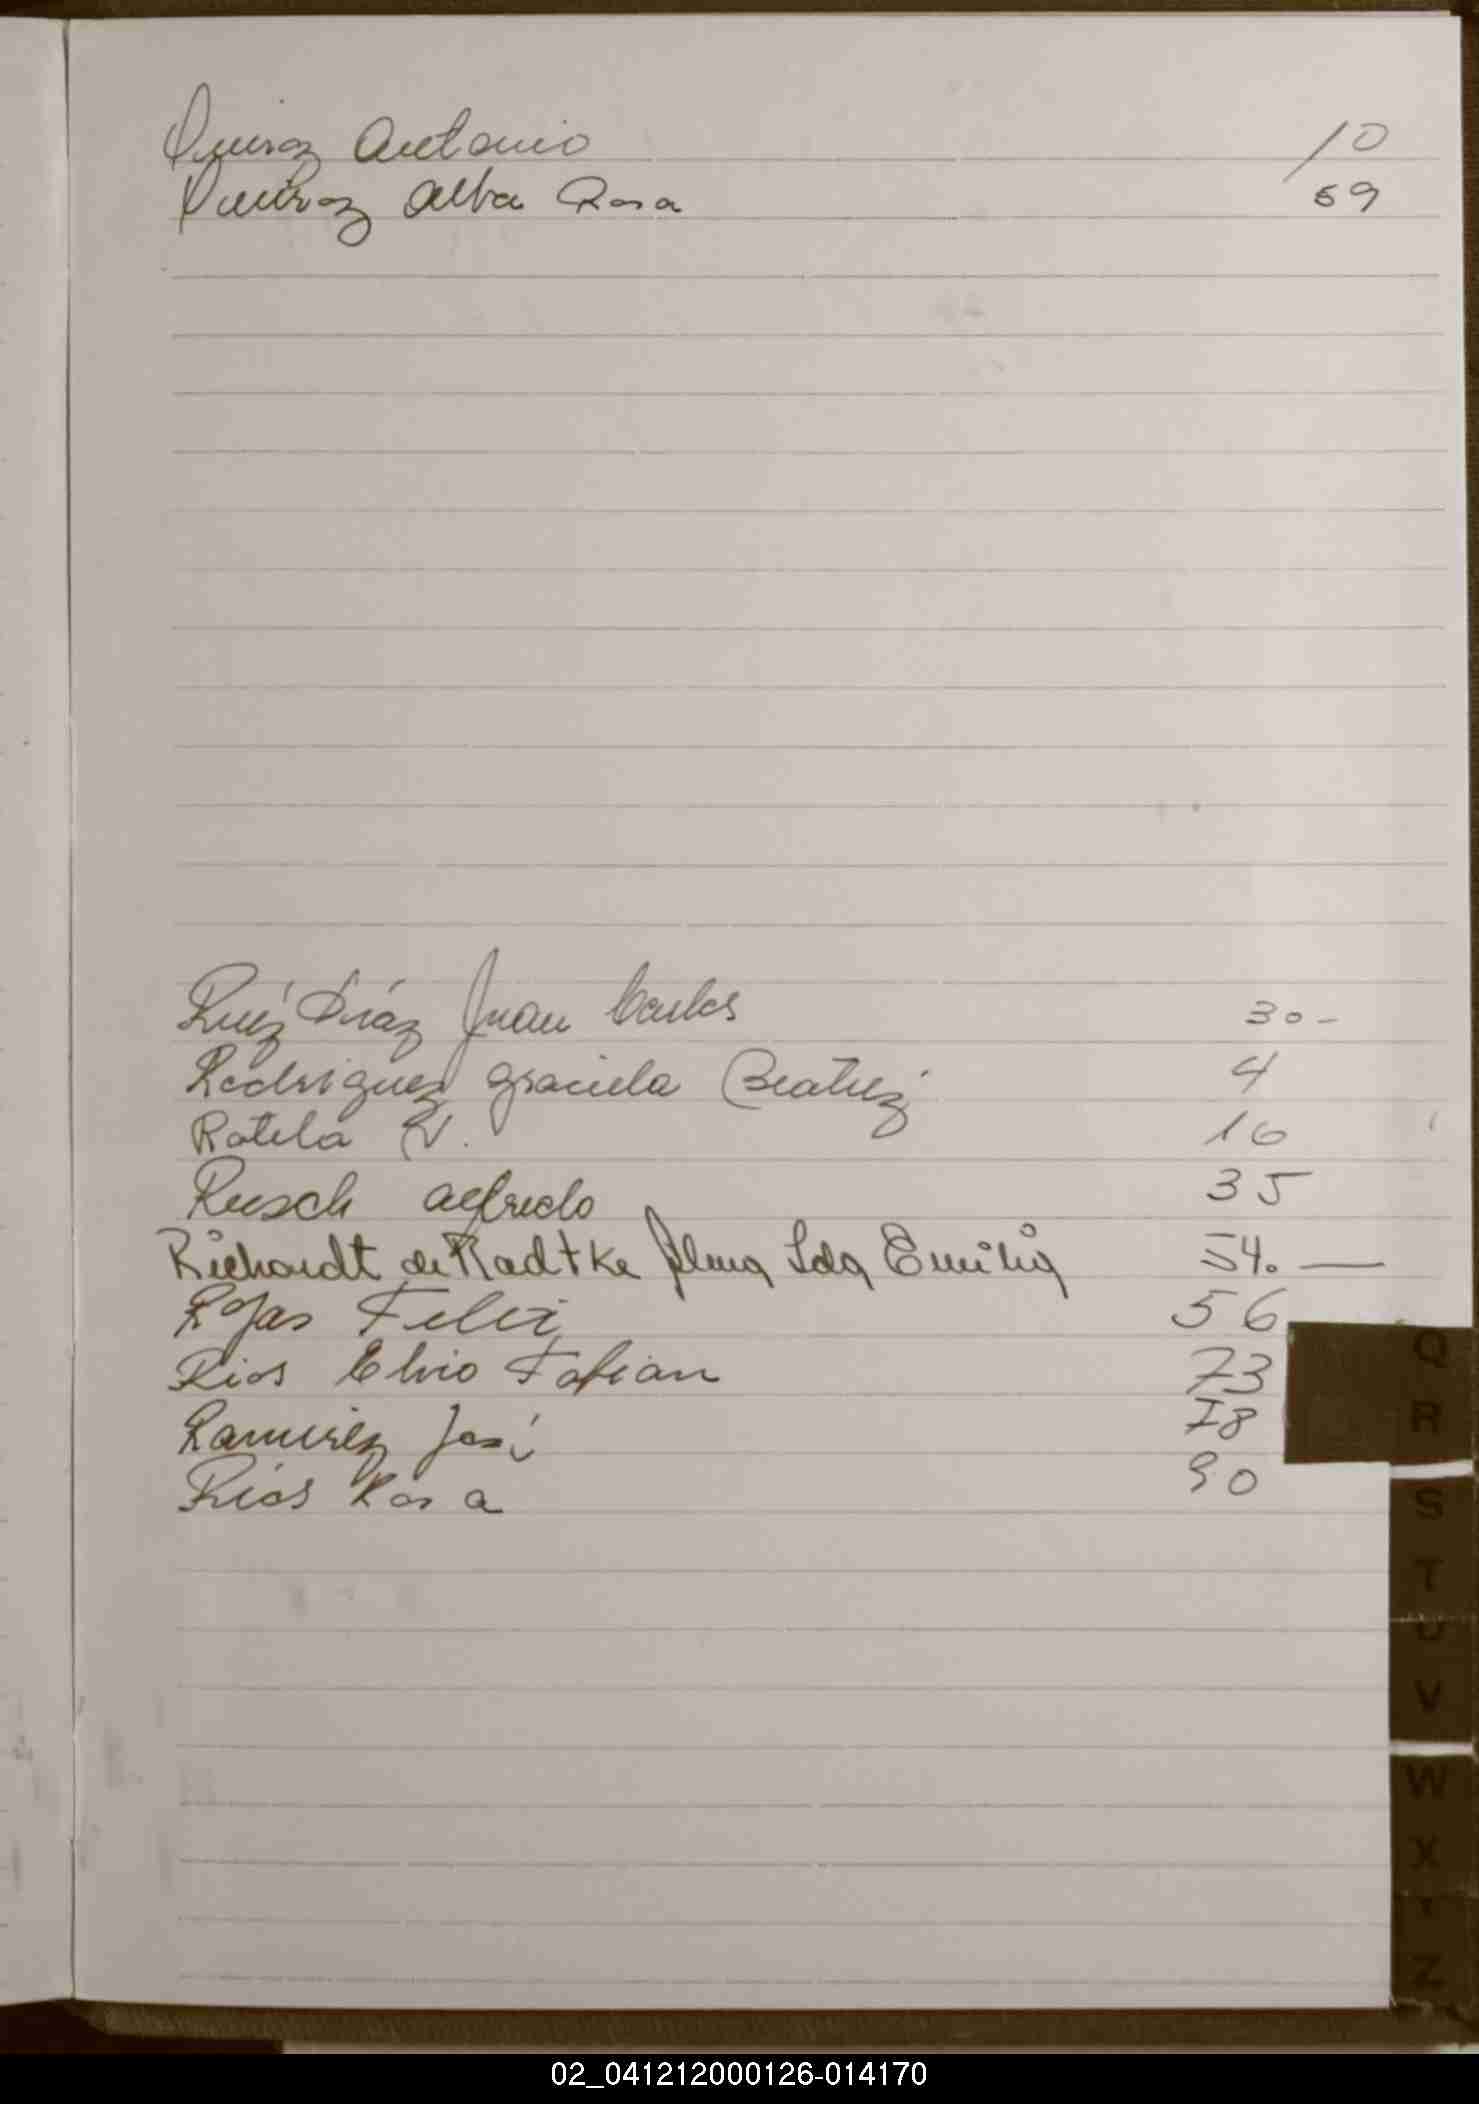 Quiroz Antonio 10
Quiroz Alba Rosa 59
Ruíz Díaz Juan Carlos 30-
Rodriguez Graciela Beatriz 4
Rotela V. 16
Rusch Alfredo 35
Richardt de Radtke Alma Ida Emilia 54. —
Rojas Felix 56
Rios Elvio Fabian 73
Ramirez José 78
Ríos Rosa 90
Q
R
S
T
U
V
W
X
Y
Z
02_041212000126-014170